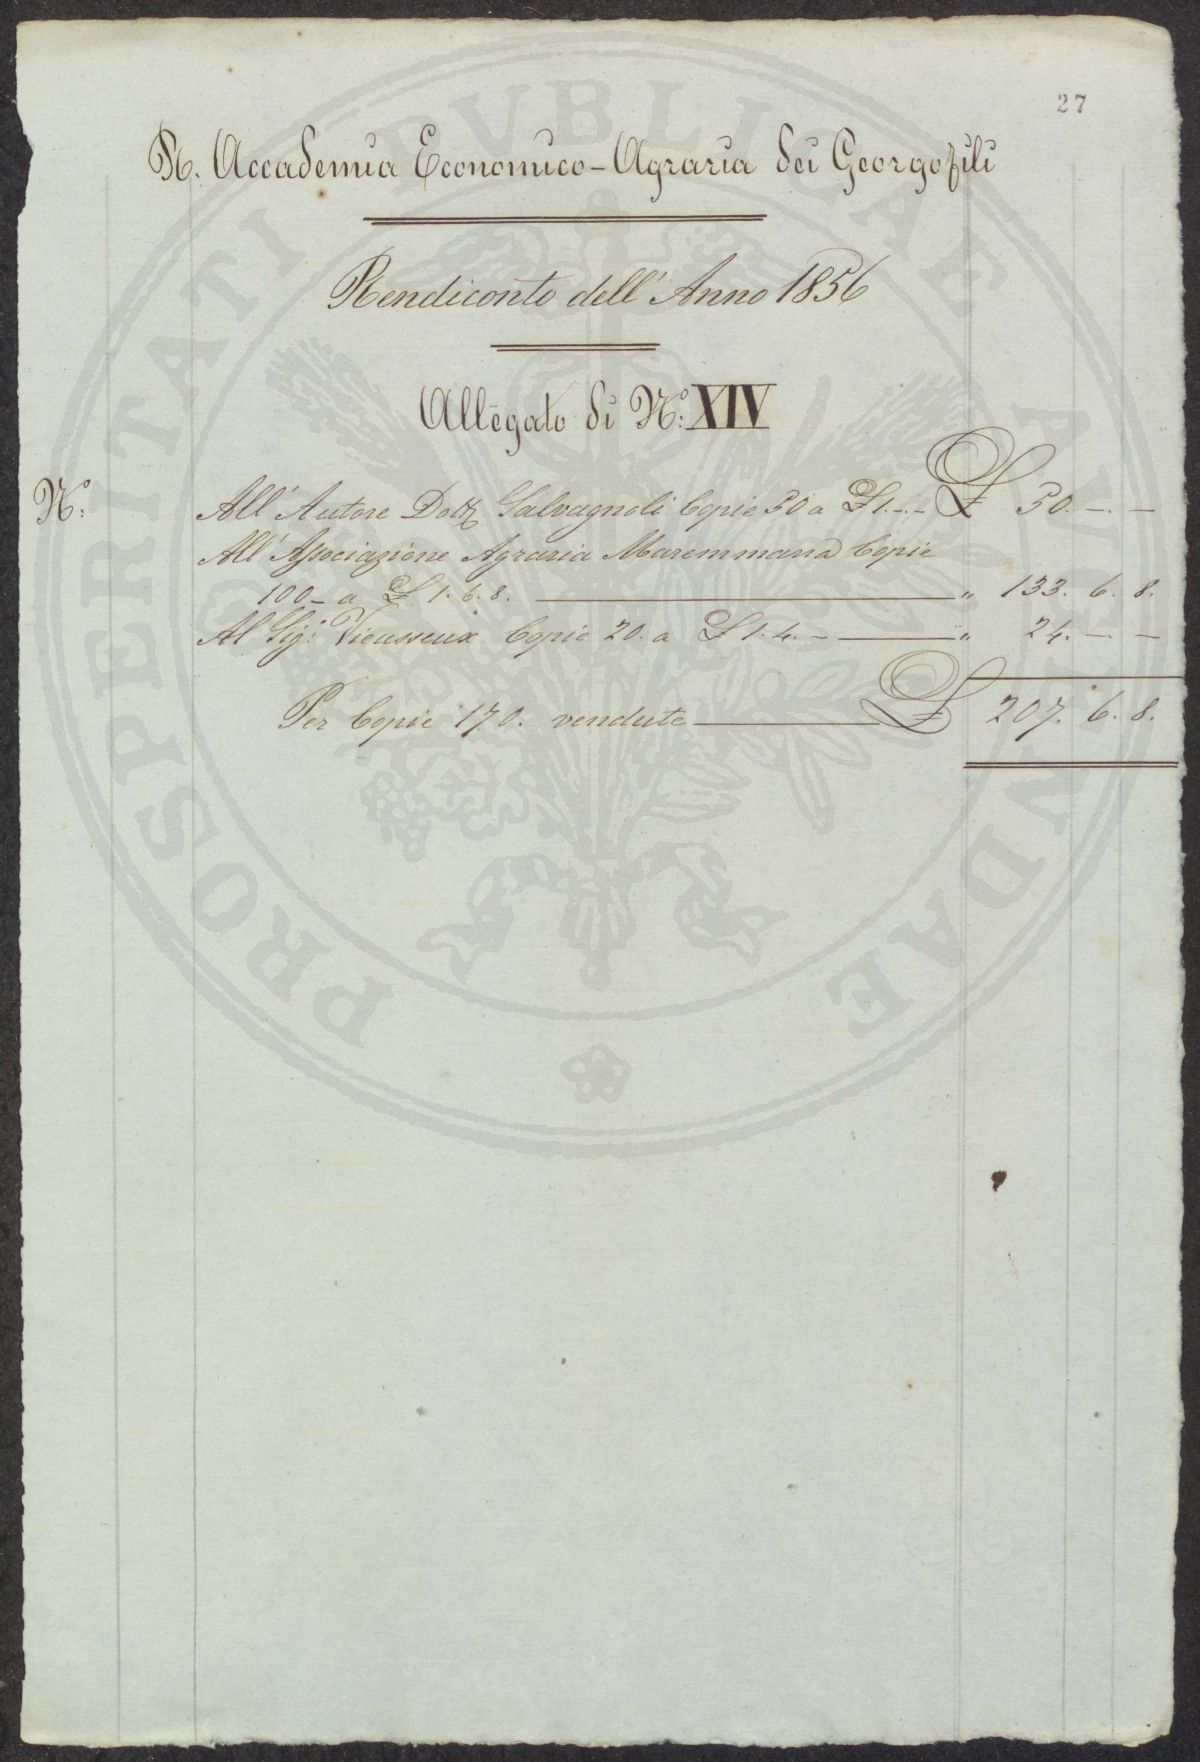 27
R. Accademia Economico-Agraria dei Georgofili
Rendiconto dell' Anno 1856
Allegato di N.° XIV
N.°
All' Autore Dott. Salvagnoli Copie 50 a £ 1.-.- £ 50. -. -
All' Associazione Agraria Maremmana Copie
100- a £ 1. 6. 8. " 133. 6. 8.
Al Sig.r Vieusseux Copie 20. a £ 1. 4. - " 24. -. -
Per Copie 170. vendute £ 207. 6. 8.
PROSPERITATI PVBLICAE AVGENDAE